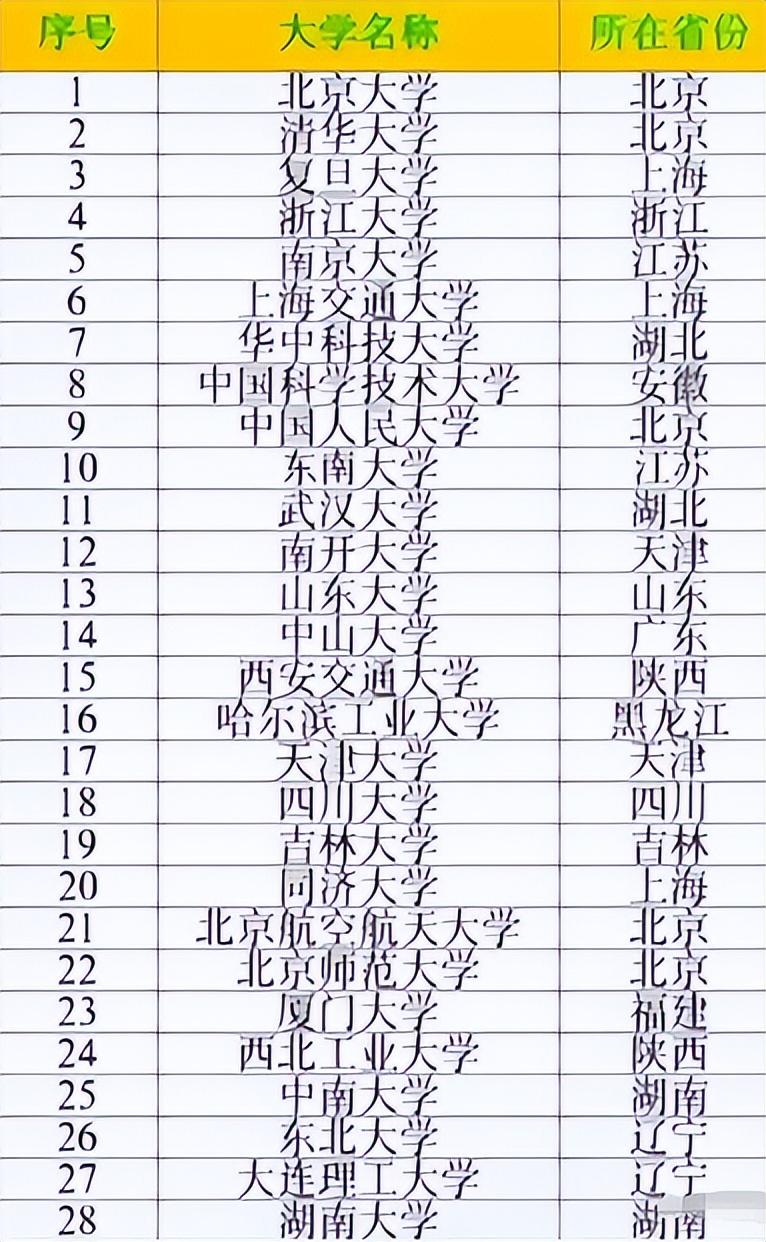 序号 大学名称 所在省份
1 北京大学 北京
2 清华大学 北京
3 复旦大学 上海
4 浙江大学 浙江
5 南京大学 江苏
6 上海交通大学 上海
7 华中科技大学 湖北
8 中国科学技术大学 安徽
9 中国人民大学 北京
10 东南大学 江苏
11 武汉大学 湖北
12 南开大学 天津
13 山东大学 山东
14 中山大学 广东
15 西安交通大学 陕西
16 哈尔滨工业大学 黑龙江
17 天津大学 天津
18 四川大学 四川
19 吉林大学 吉林
20 同济大学 上海
21 北京航空航天大学 北京
22 北京师范大学 北京
23 厦门大学 福建
24 西北工业大学 陕西
25 中南大学 湖南
26 东北大学 辽宁
27 大连理工大学 辽宁
28 湖南大学 湖南